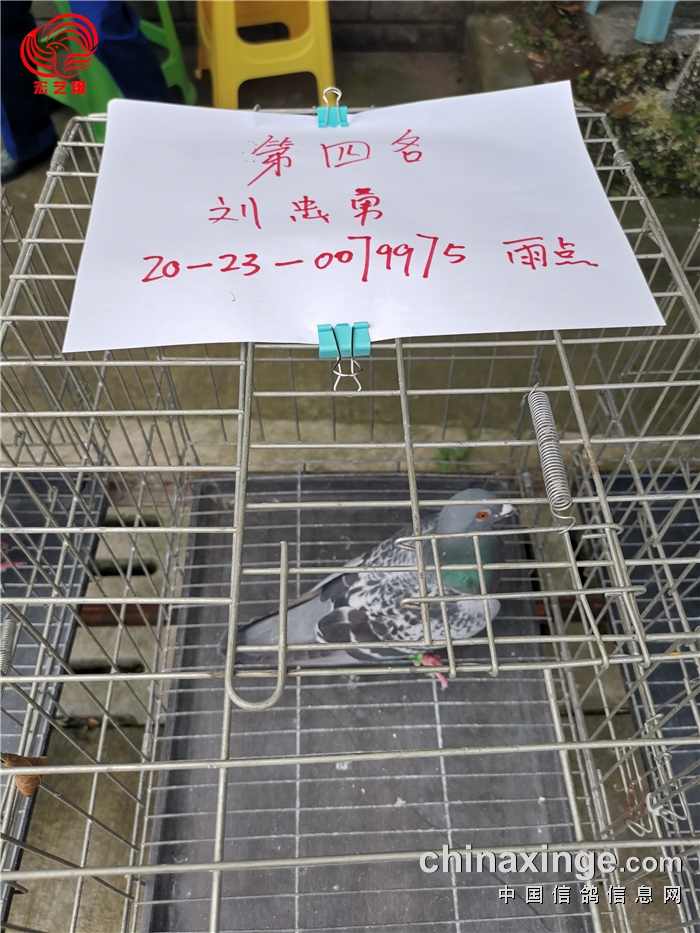 宏艺阁
第四名
刘忠勇
20-23-0079975 雨点
chinaxinge.com
中国信鸽信息网